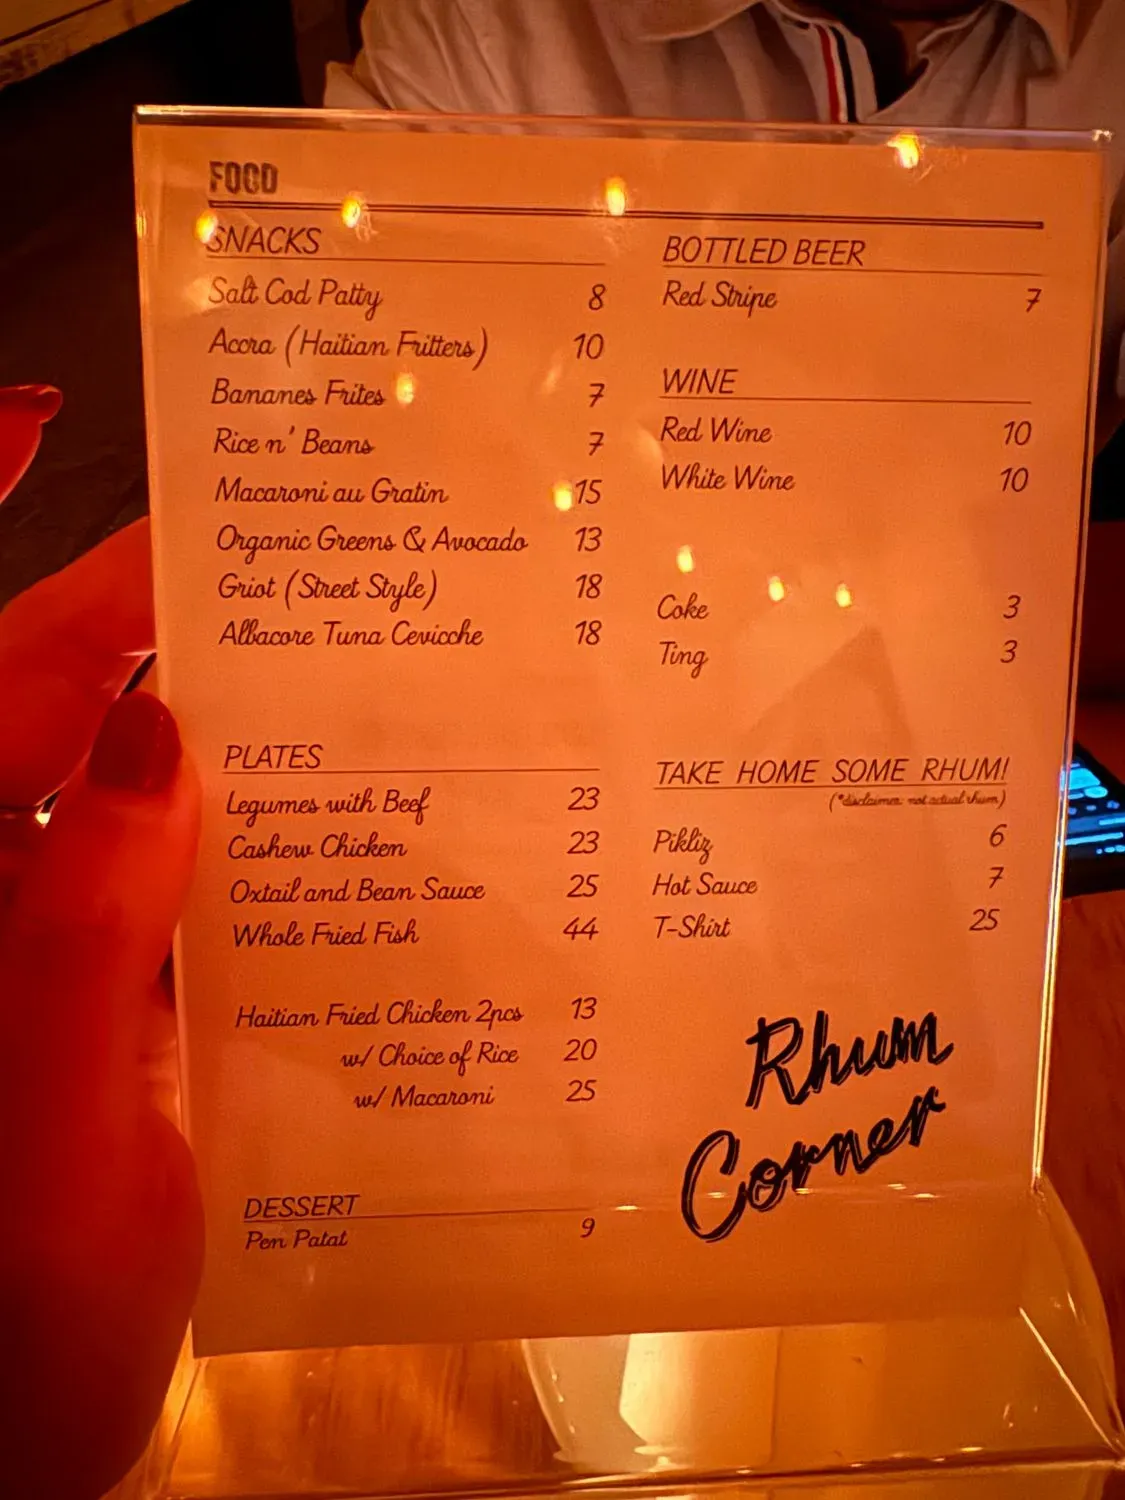 FOOD
SNACKS
Salt Cod Patty 8
Accra (Haitian Fritters) 10
Bananes Frites 7
Rice n' Beans 7
Macaroni au Gratin 15
Organic Greens & Avocado 13
Griot (Street Style) 18
Albacore Tuna Cevicche 18
PLATES
Legumes with Beef 23
Cashew Chicken 23
Oxtail and Bean Sauce 25
Whole Fried Fish 44
Haitian Fried Chicken 2pcs 13
w/ Choice of Rice 20
w/ Macaroni 25
DESSERT
Pen Patat 9
BOTTLED BEER
Red Stripe 7
WINE
Red Wine 10
White Wine 10
Coke 3
Ting 3
TAKE HOME SOME RHUM!
(*disclaimer: not actual rhum)
Pikliz 6
Hot Sauce 7
T-Shirt 25
Rhum
Corner